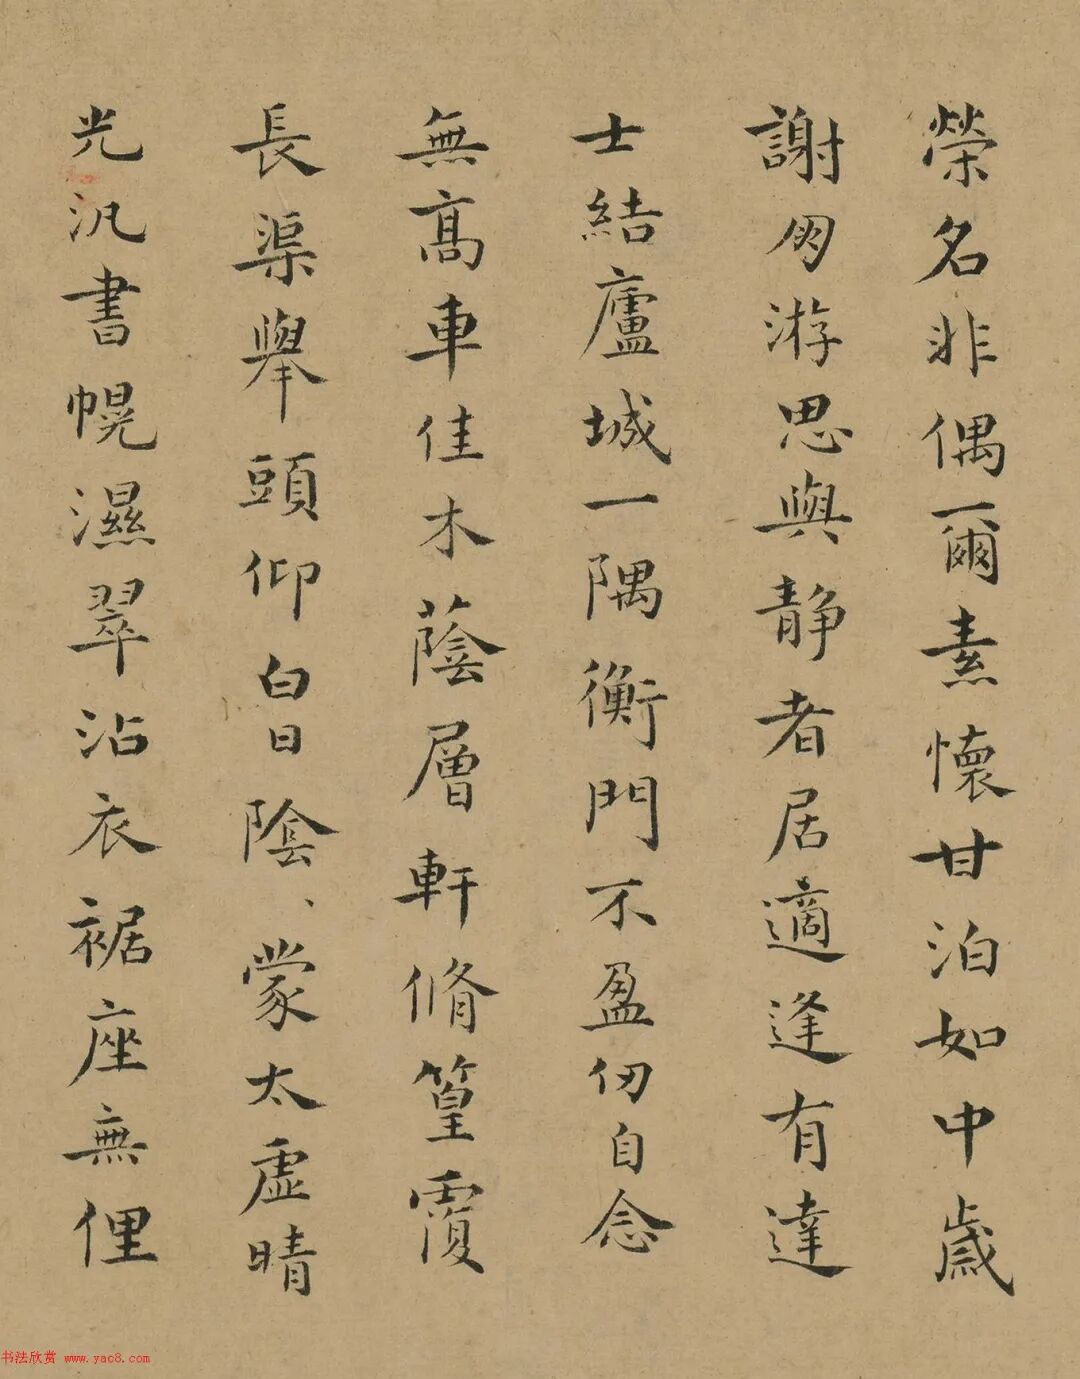 榮名非偶爾素懷甘泊如中歲
謝朋游思與静者居適逢有達
士結廬城一隅衡門不盈仞自念
無高車佳木蔭層軒脩篁覆
長渠舉頭仰白日陰、蒙太虛晴
光汎書幌濕翠沾衣裾座無俚
书法欣赏 www.yac8.com